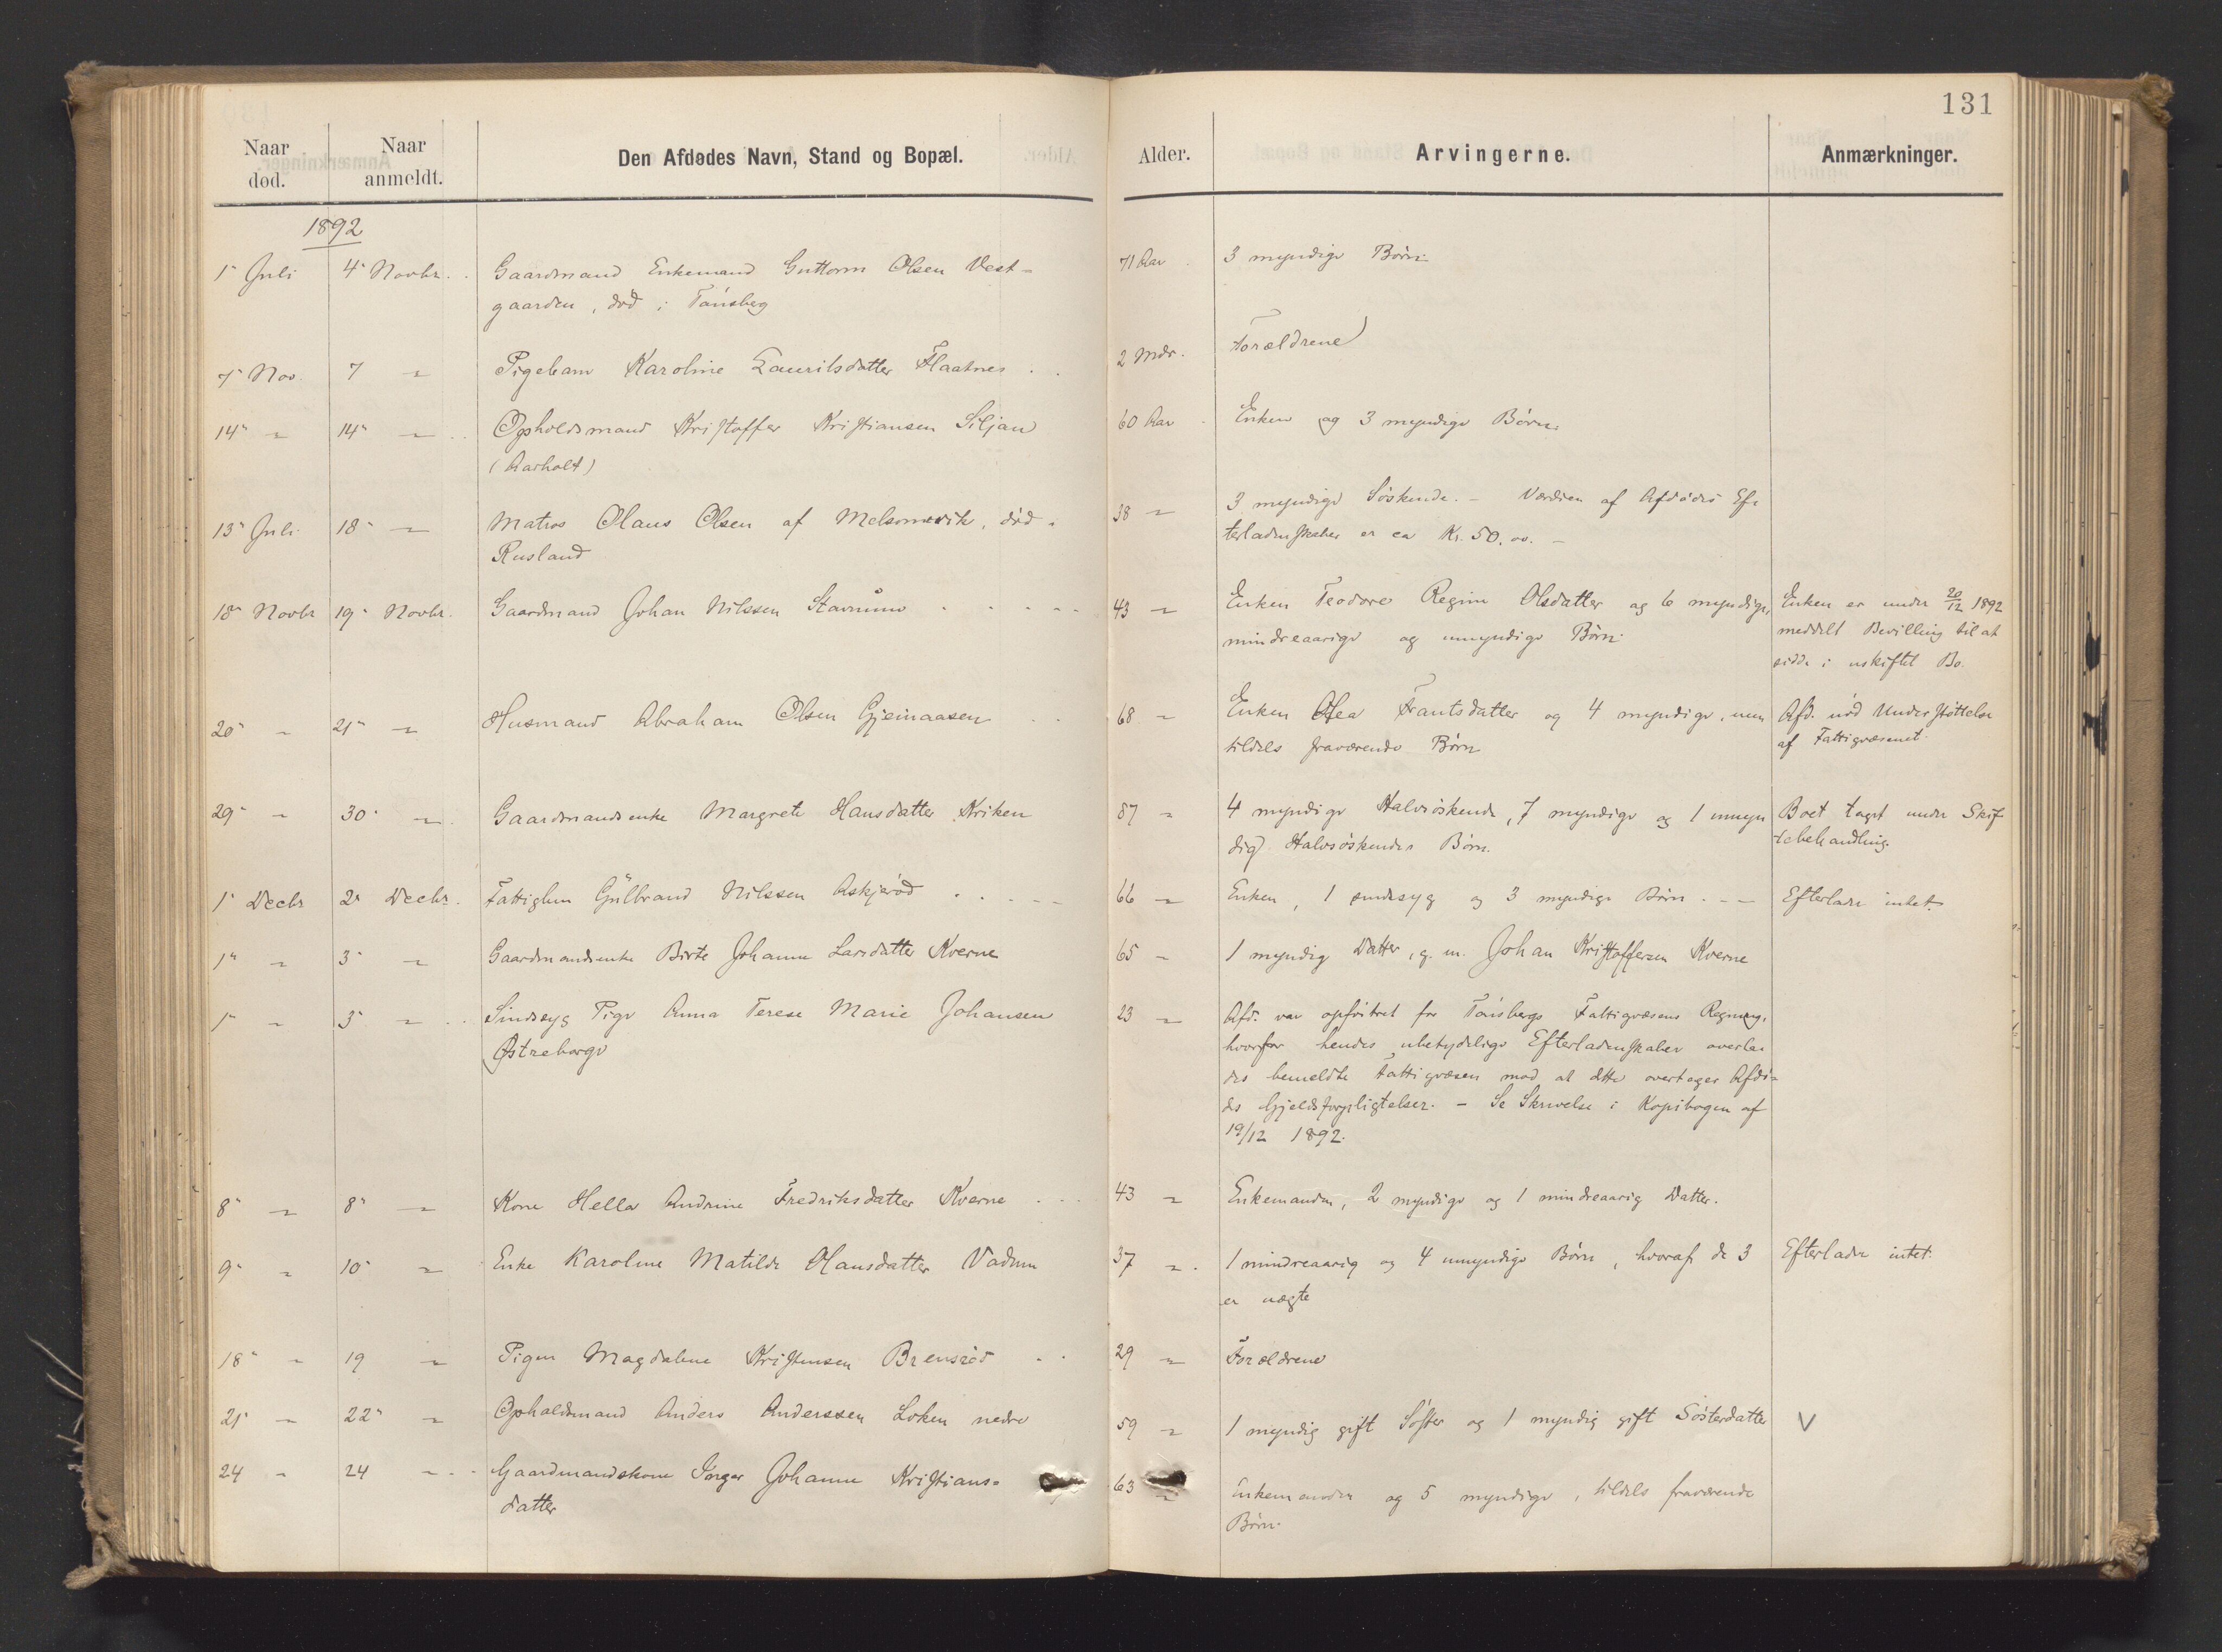 131
Naar død. Naar anmeldt. Den Afdødes Navn, Stand og Bopæl. Alder. Arvingerne. Anmærkninger.
1892
1 Juli 4 Novbr. Gaardmand Enkemand Guttorm Olsen Vest- 71 Aar 3 myndige Børn
gaarden, død i Tønsberg
7 Nov. 7 " Pigebarn Karoline Lauritsdatter Flaatnes 2 Mdr. Forældrene
14 " 14 " Opholdsmand Kristoffer Kristiansen Siljan 60 Aar Enken og 3 myndige Børn.
(Aarholt)
13 Juli 18 " Matros Olaus Olsen af Melsomvik, død i 38 " 3 myndige Søskende. - Værdien af Afdødes Ef-
Rusland terladenskaber er ca Kr. 50.00. -
18 Novbr 19 Novbr. Gaardmand Johan Nilssen Stavnum 43 " Enken Teodore Regine Olsdatter og 6 myndige, Enken er under 20/12 1892
mindreaarige og umyndige Børn. meddelt Bevilling til at
sidde i uskiftet Bo.
20 " 21 " Husmand Abraham Olsen Gjeinaasen 68 " Enken Olea Frantsdatter og 4 myndige, men Afd. nød Understøttelse
tildels fraværende Børn af Fattigvæsenet.
29 " 30 " Gaardmandsenke Margrete Hansdatter Kriken 87 " 4 myndige Halvsøskende, 7 myndige og 1 umyn Boet taget under Skif
dig Halvsøskendes Børn. tebehandling.
1 Decbr 2 Decbr. Fattiglem Gulbrand Nilssen Askjerød 66 " Enken, 1 sindssyg og 3 myndige Børn Efterlader intet.
1 " 3 " Gaardmandsenke Birte Johanne Larsdatter Kverne 65 " 1 myndig Datter, g. m. Johan Kristoffersen Kverne
1 " 3 " Sindsyg Pige Anna Terese Marie Johansen 23 " Afd. var opføstret for Tønsbergs Fattigvæsens Regning,
Østreborge hvorfor hendes ubetydelige Efterladenskaber overla-
des bemeldte Fattigvæsen mod at dette overtager Afdø-
des Gjeldsforpligtelser. - Se Skrivelse i Kopibogen af
19/12 1892.
8 " 8 " Kone Hella Andrine Fredriksdatter Kverne 43 " Enkemanden, 2 myndige og 1 mindreaarig Datter.
9 " 10 " Enke Karoline Matilde Hansdatter Vadum 37 " 1 mindreaarig og 4 umyndige Børn, hvoraf de 3 Efterlader intet.
er uægte
18 " 19 " Pigen Magdalene Kristensen Brensrød 29 " Forældrene
21 " 22 " Opholdsmand Anders Anderssen Løken nedre 59 " 1 myndig gift Søster og 1 myndig gift Søsterdatter V
24 " 24 " Gaardmandskone Inger Johanne Kristians- 63 " Enkemanden og 5 myndige, tildels fraværende
datter Børn.